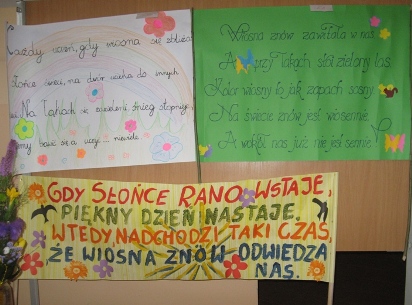 Każdy uczeń, gdy wiosna się zbliża
Słońce świeci, na dwór ucieka do innych
Na łąkach się zazieleni, śnieg stopnieje
my bać się a uczyć ... niewiele
Wiosna znów zawitała w nas.
A przy łąkach stoi zielony las.
Kolor wiosny to jak zapach sosny
Na świecie znów jest wiosennie.
A wokół nas już nie jest sennie!
GDY SŁOŃCE RANO WSTAJE,
PIĘKNY DZIEŃ NASTAJE.
WTEDY, NADCHODZI TAKI CZAS,
ŻE WIOSNA ZNÓW ODWIEDZA
NAS.